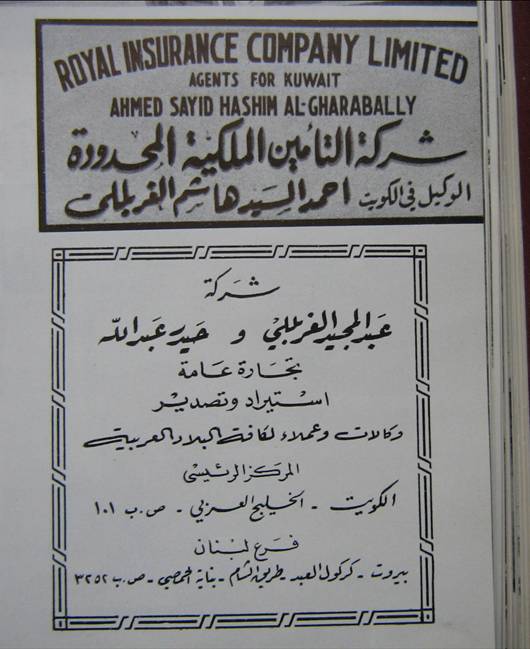 ROYAL INSURANCE COMPANY LIMITED
AGENTS FOR KUWAIT
AHMED SAYID HASHIM AL-GHARABALLY
شركة التأمين الملكية المحدودة
الوكيل في الكويت احمد السيد هاشم الغربللي
شركة
عبد المجيد الغربللي و حيدر عبد الله
تجارة عامة
استيراد وتصدير
وكالات وعملاء لكافة البلاد العربية
المركز الرئيسي
الكويت - الخليج العربي - ص.ب ١٠١
فرع لبنان
بيروت - كركول العبد - طريق الشام - بناية الحمصي - ص.ب ٣٢٥٢